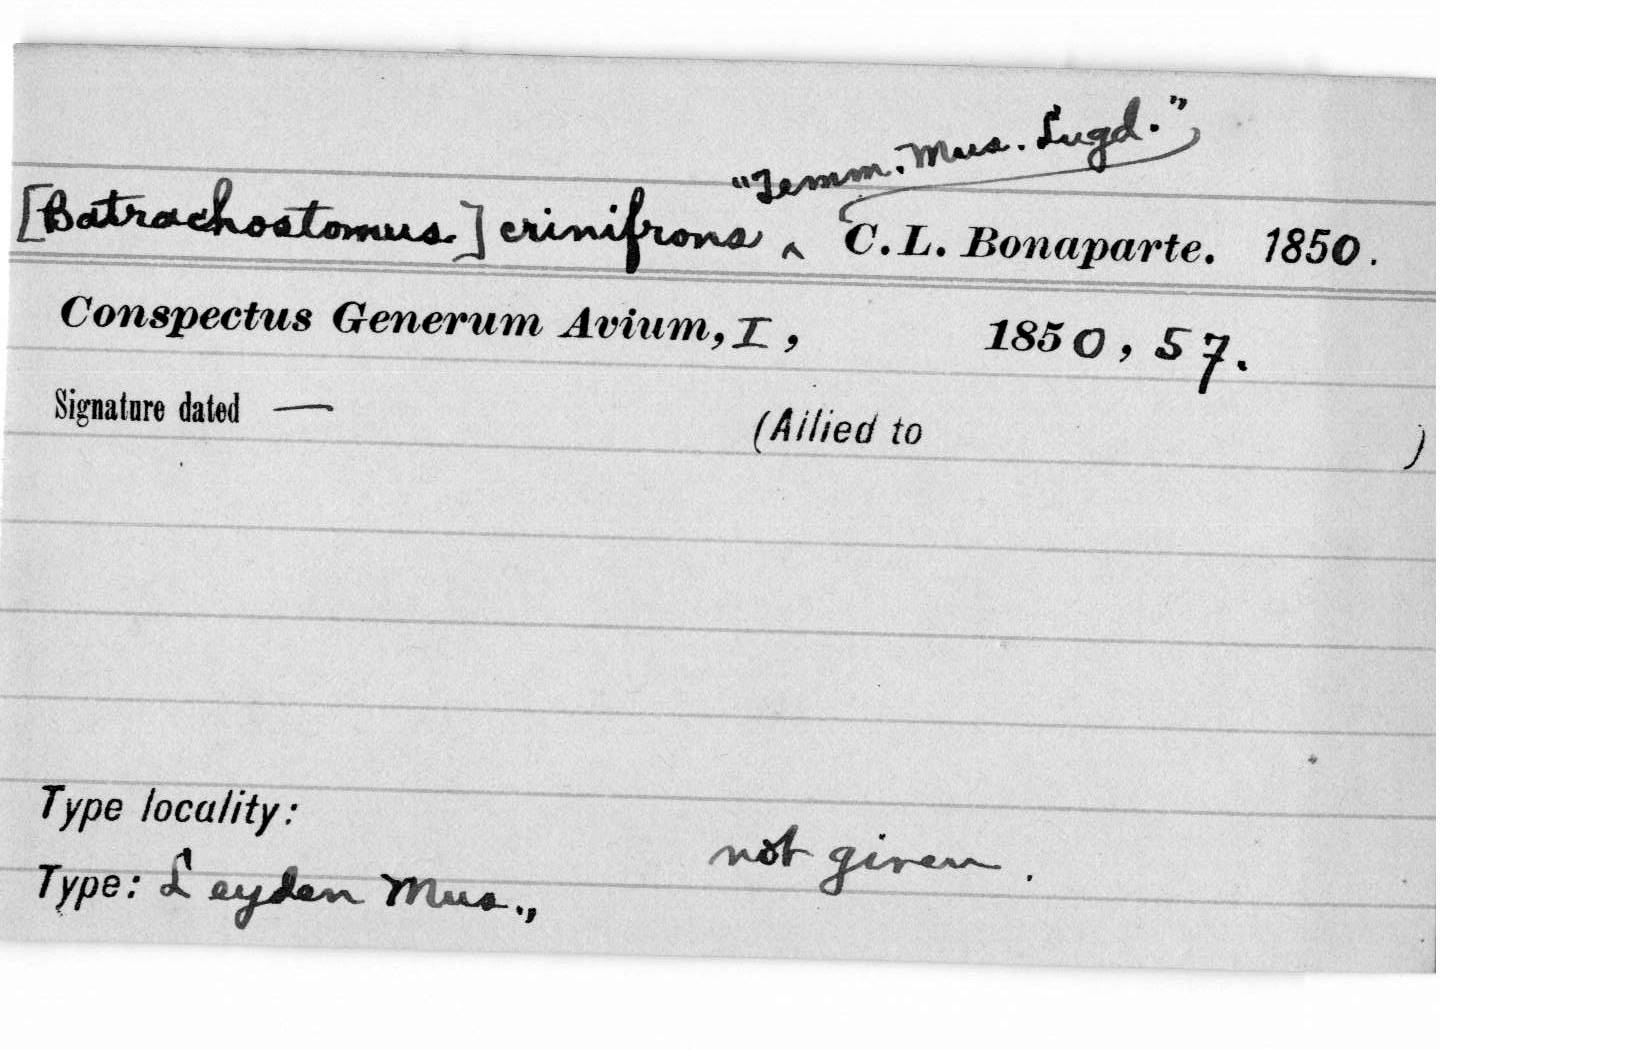 "Temm. Mus. Lugd."
[Batrachostomus] crinifrons ^ C.L. Bonaparte. 1850.
Conspectus Generum Avium, I, 1850, 57.
Signature dated — (Allied to )
Type locality:
not given.
Type: Leyden Mus.,